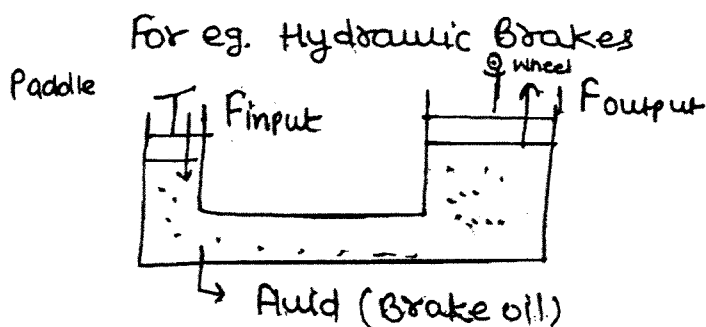 For eg. Hydraulic Brakes
Paddle
Finput
wheel
Foutput
Fluid (Brake oil)